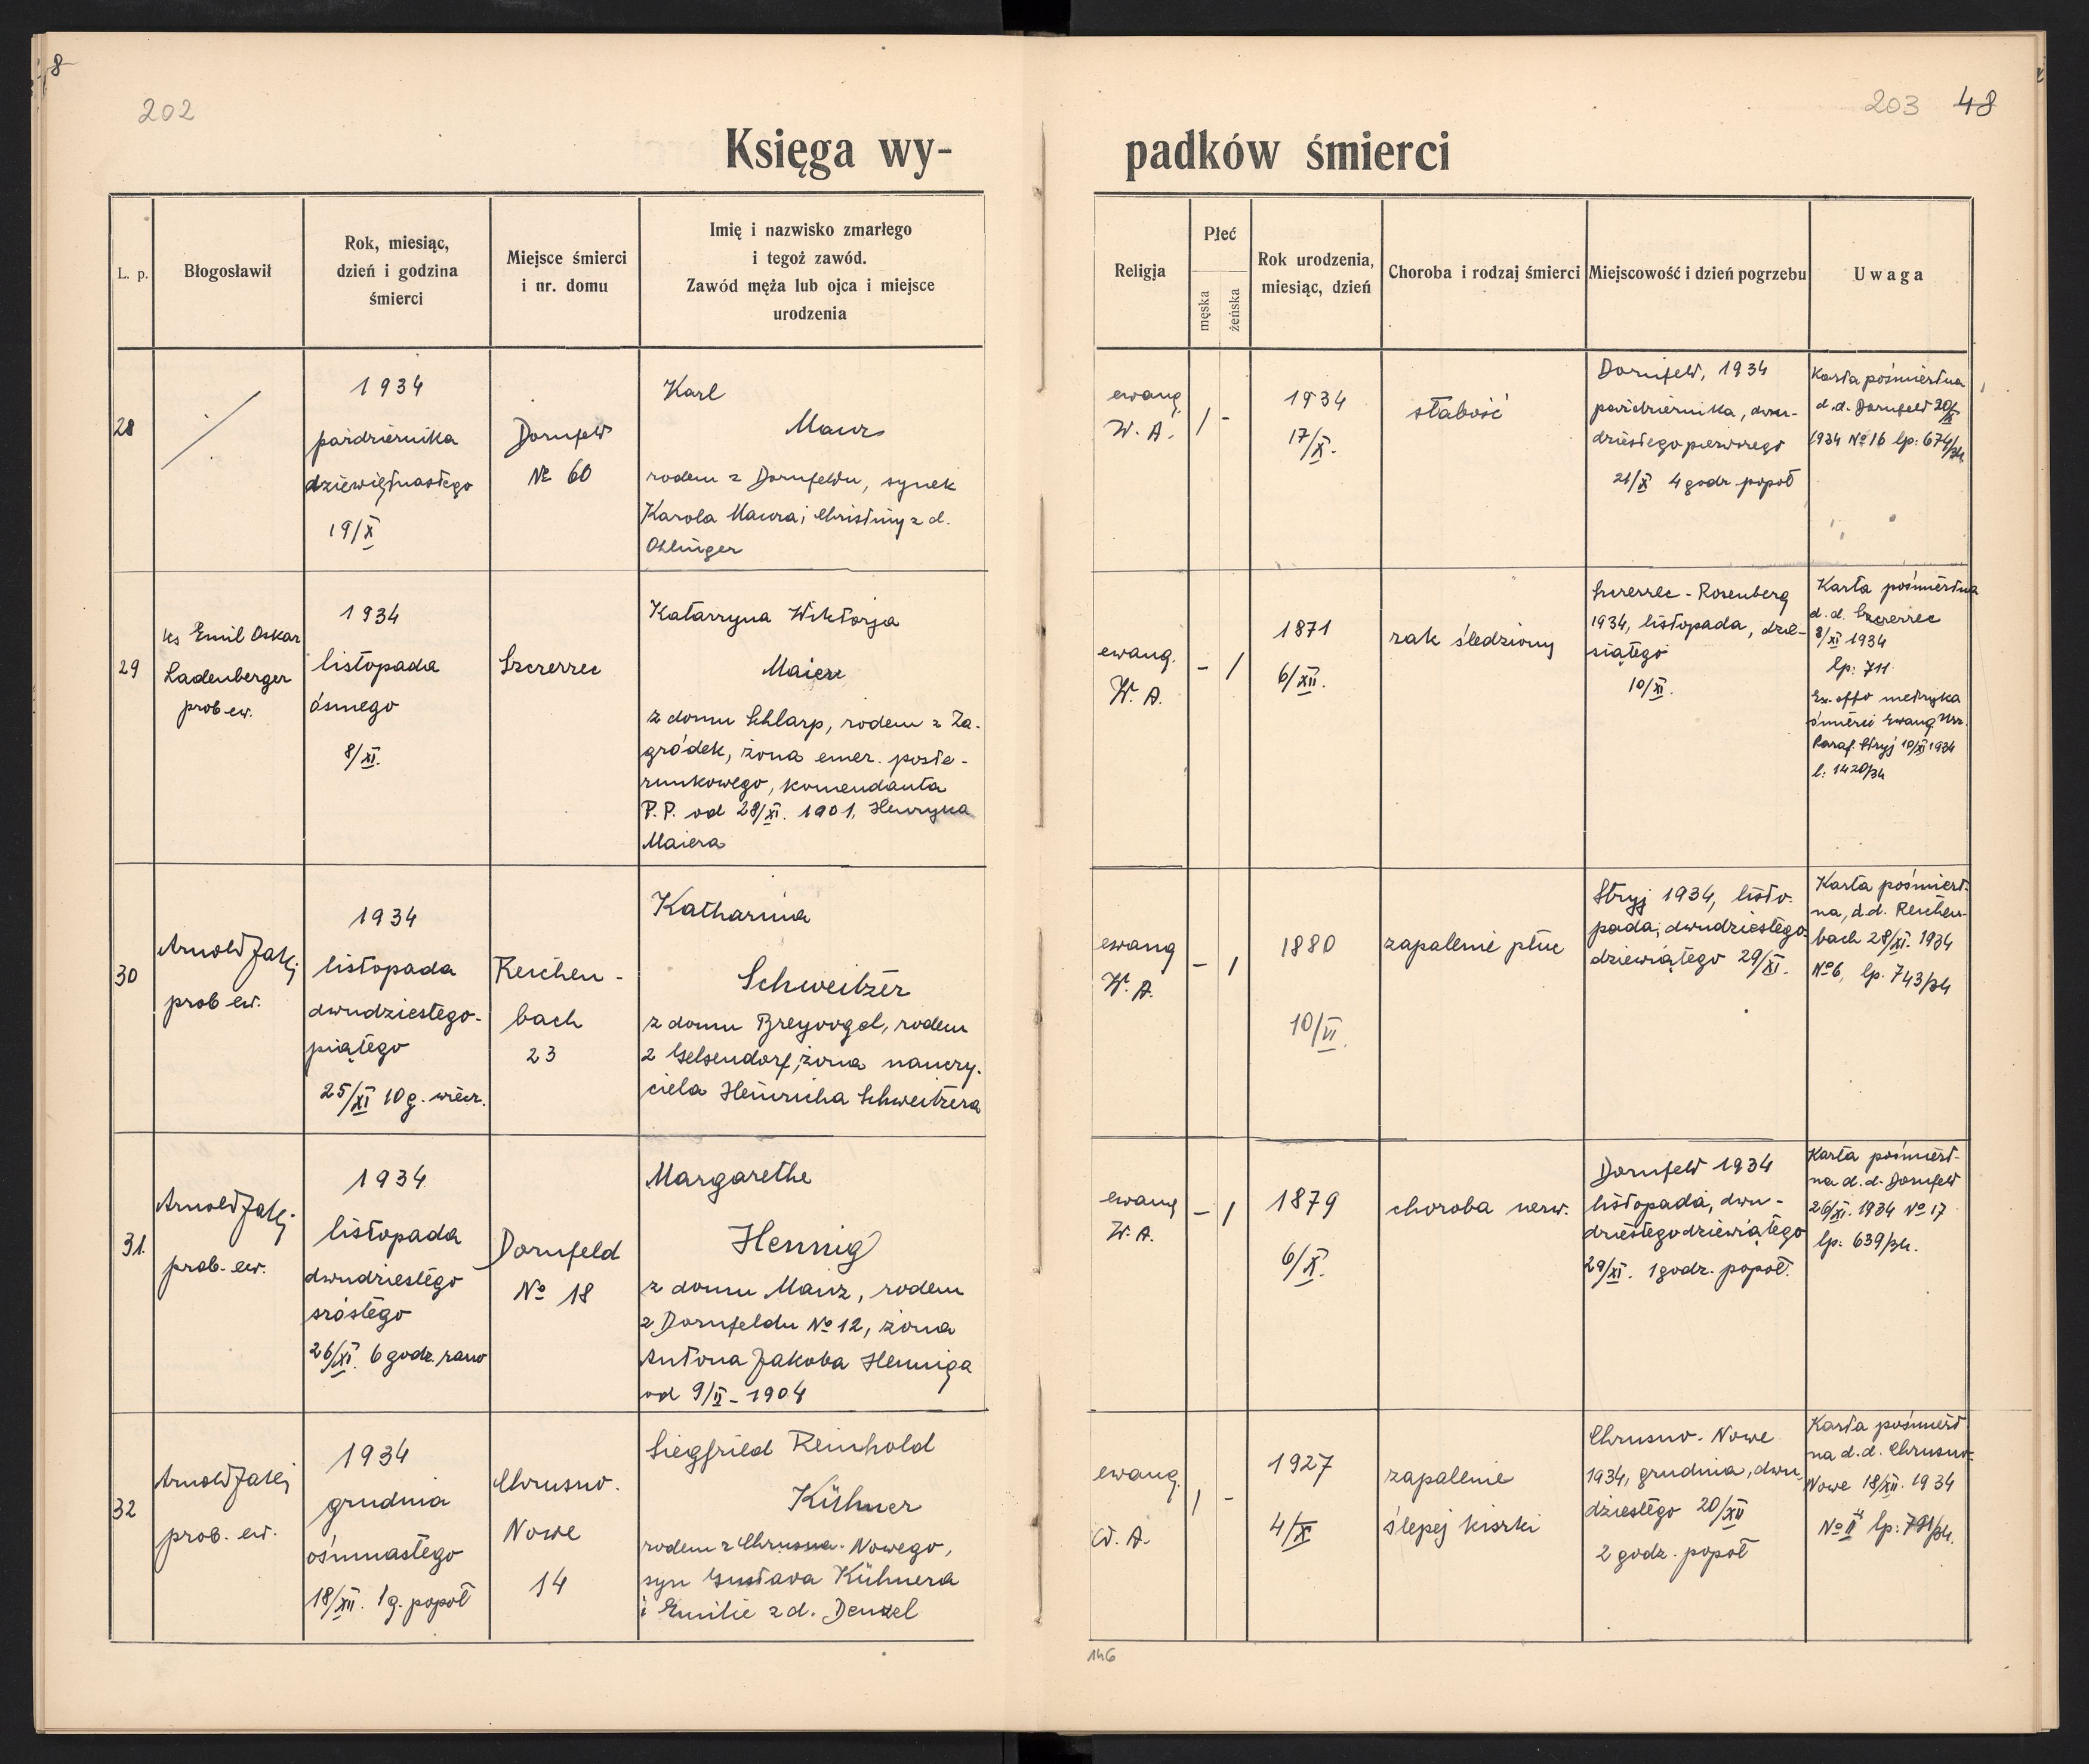 8
202
203 48
Księga wy-
padków śmierci
L. p.
Błogosławił
Rok, miesiąc,
dzień i godzina
śmierci
Miejsce śmierci
i nr. domu
Imię i nazwisko zmarłego
i tegoż zawód.
Zawód męża lub ojca i miejsce
urodzenia
Religja
Płeć
męska
żeńska
Rok urodzenia,
miesiąc, dzień
Choroba i rodzaj śmierci
Miejscowość i dzień pogrzebu
Uwaga
28
1934
października
dziewiętnastego
19/X
Dornfeld
№ 60
Karl
Maurs
rodem z Dornfeldu, synek
Karola Maura i Christiny z d.
Ohlinger
ewang.
W. A.
/ -
1934
17/X.
słabość
Dornfeld, 1934
października, dwu-
dziestego pierwszego
21/X 4 godz popoł
Karta pośmiertna
d.d. Dornfeld 20/X
1934 № 16 lp: 674/34
29
ks Emil Oskar
Ladenberger
prob ew.
1934
listopada
ósmego
8/XI.
Szczerzec
Katarzyna Wiktorja
Maier
z domu Schlarp, rodem z Za-
gródek, żona emer. poste-
runkowego, komendanta
P.P. od 28/XI. 1901, Henryka
Maiera
ewang.
W. A.
- /
1871
6/XII.
rak śledziony
Szczerzec - Rosenberg
1934, listopada, dzie-
siątego
10/XI.
Karta pośmiertna
d.d. Szczerzec
8/XI 1934
lp: 711
Ex. offo metryka
śmierci Ewang Urz.
Paraf. Stryj 10/XI 1934
l: 1420/34
30
Arnold Jaki
prob ew.
1934
listopada
dwudziestego-
piątego
25/XI 10 g. wiecz.
Reichen-
bach
23
Katharina
Schweitzer
z domu Breyvogel, rodem
z Gelsendorf, żona nauczy-
ciela Heinricha Schweitzera
ewang
W. A.
- /
1880
10/VI.
zapalenie płuc
Stryj 1934, listo-
pada, dwudziestego
dziewiątego 29/XI.
Karta pośmiert-
na, d.d. Reichen-
bach 28/XI. 1934
№ 6, lp. 743/34
31.
Arnold Jaki
prob. ew.
1934
listopada
dwudziestego
szóstego
26/XI. 6 godz. rano
Dornfeld
№ 18
Margarethe
Hennig
z domu Maurz, rodem
z Dornfeldu № 12, żona
Antona Jakoba Henniga
od 9/II - 1904
ewang
W. A.
- /
1879
6/X.
choroba nerw.
Dornfeld 1934
listopada, dwu-
dziestego dziewiątego
29/XI. 1 godz. popoł.
Karta pośmiert-
na d.d. Dornfeld
26/XI. 1934 № 17
lp: 639/34.
32
Arnold Jaki
prob. ew.
1934
grudnia
ośmnastego
18/XII. 1 g. popoł
Chrusno-
Nowe
14
Siegfried Reinhold
Kühner
rodem z Chrusna-Nowego,
syn Gustava Kühnera
i Emilie z d. Denzel
ewang.
W. A.
/ -
1927
4/X
zapalenie
ślepej kiszki
Chrusno-Nowe
1934, grudnia, dwu-
dziestego 20/XII
2 godz. popoł
Karta pośmiert
na d.d. Chrusno-
Nowe 18/XII. 1934
№ 11 lp: 791/34.
146